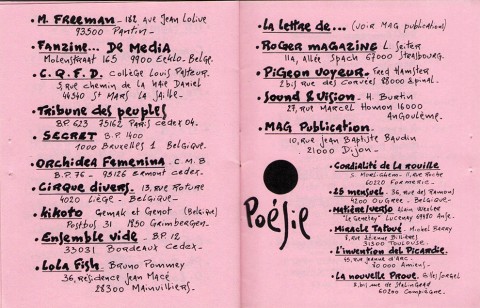 • M. Freeman - 162, ave Jean Lolive
93500 Pantin -
• Fanzine... De Media
Molenstraat 165 9900 Eeklo - Belge.
• C.Q.F.D. Collège Louis Pasteur.
3, rue chemin de la Haie Daniel
44540 St Mars la Jaille -
• Tribune des peuples
B.P 623 75162 Paris cedex 04.
• SECRET - B.P. 400
1000 Bruxelles 1 Belgique.
• Orchidea Femenina - C.M.B
B.P. 76 - 93126 Ermont cedex.
• Cirque divers. 13, rue Roture
4020 Liège - Belgique -
• Kikoto Gemak et Genot (Belgique)
Postbus 31 1850 Grimbergen -
• Ensemble vide - B.P. 12
33031 Bordeaux Cedex -
• Lola Fish - Bruno Pommey
36, résidence Jean Macé
28300 Mainvilliers.
• La lettre de... (voir MAG publication)
• Roger magazine L. Seiter
11a, Allée Spach 67000 Strasbourg.
• Pigeon voyeur. Fred Hamster
2 bis rue des Corvées 88000 Epinal.
• Sound & Vision - H. Burtin
27, rue Marcel 16000
Angoulême.
• MAG Publication.
10, rue Jean Baptiste Baudin
21000 Dijon.
Poésie
• Cordialité de la rouille
60220 Formerie -
• 25 mensuel - 36, rue des Ramons
4200 Ougrée - Belgique -
• Matière/verso
"Le Genetay" Lucenay 69480 Anse.
• Miracle Tatoué - Michel Barry
rue Etienne Billières
31300 Toulouse.
• L'invention de Picardie.
rue Jeanne d'Arc -
80000 Amiens
• La nouvelle Proue. Gilles Jorgel
8, bis rue de Stalingrad
60200 Compiègne.